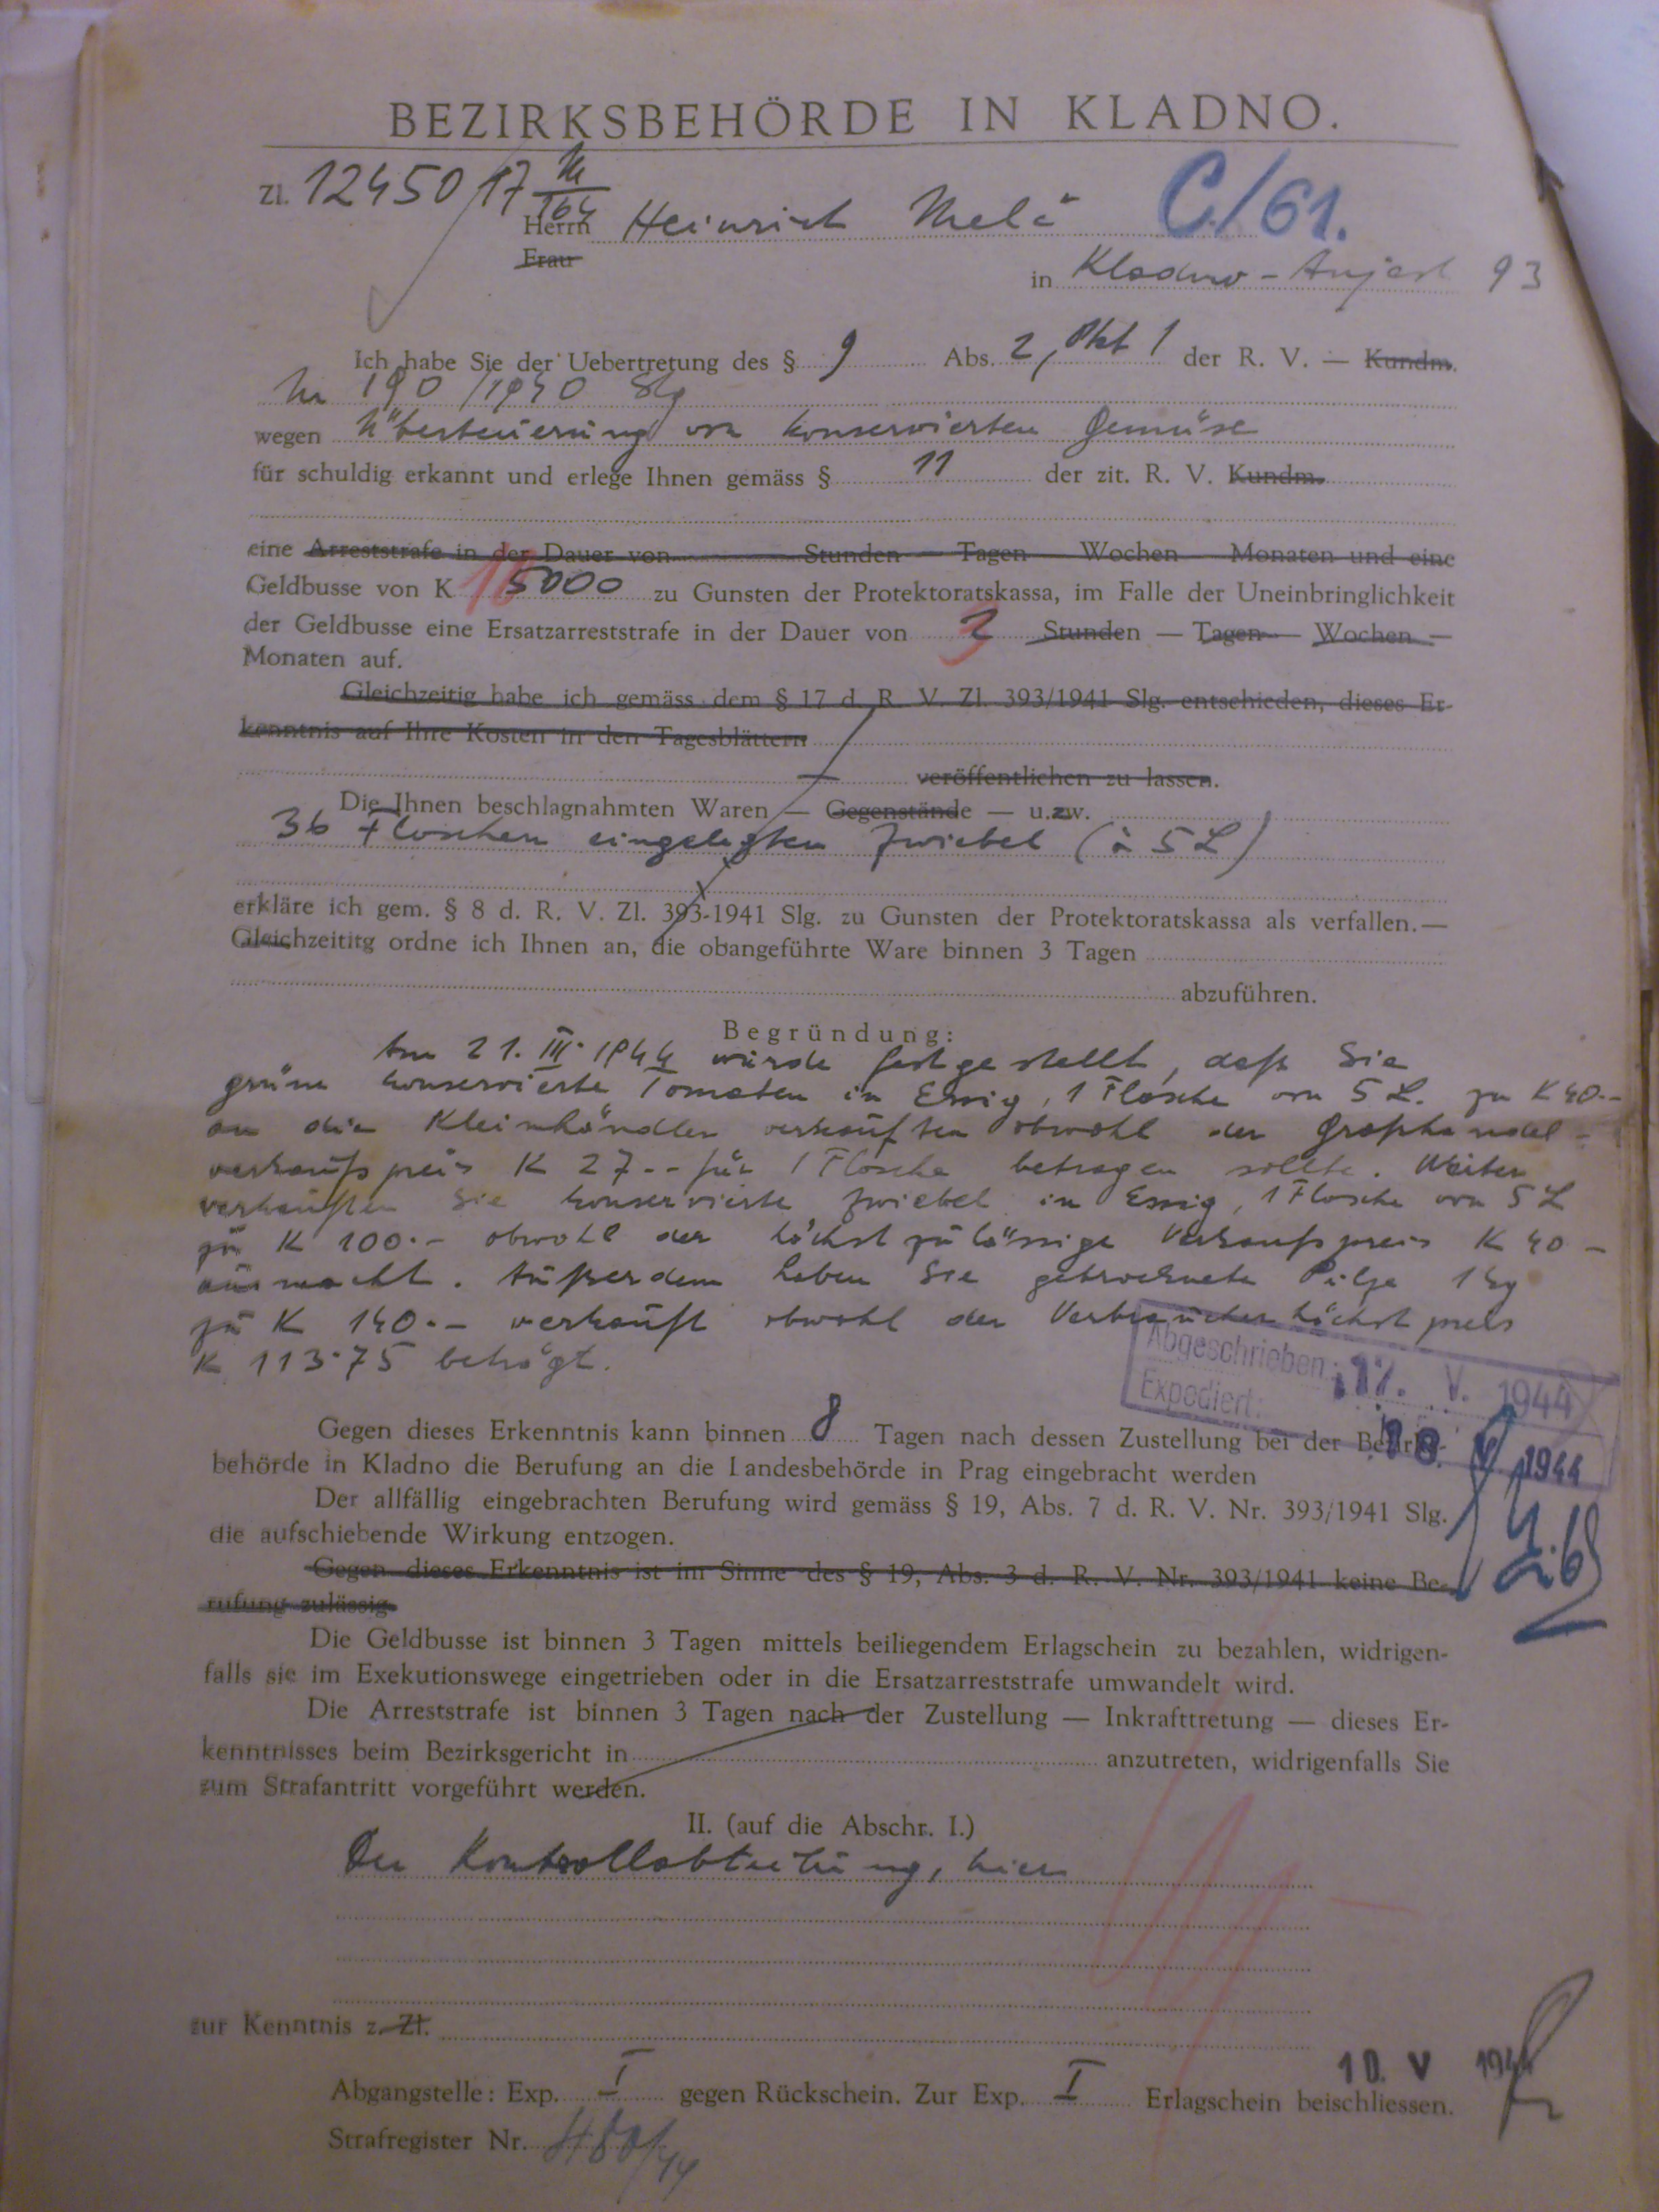 BEZIRKSBEHÖRDE IN KLADNO.
Zl. 12450/17
C/61.
Herrn Heinrich
Frau
in Kladno - 93
Ich habe Sie der Uebertretung des § 9 Abs. 2, Pkt 1 der R. V. — Kundm.
Nr 190/1940 Slg
wegen Überteuerung von konservierten Gemüse
für schuldig erkannt und erlege Ihnen gemäss § 11 der zit. R. V. Kundm.
eine Arreststrafe in der Dauer von Stunden — Tagen — Wochen — Monaten und eine
Geldbusse von K 5000 zu Gunsten der Protektoratskassa, im Falle der Uneinbringlichkeit
der Geldbusse eine Ersatzarreststrafe in der Dauer von 3 Stunden — Tagen — Wochen —
Monaten auf.
Gleichzeitig habe ich gemäss dem § 17 d. R. V. Zl. 393/1941 Slg. entschieden, dieses Er-
kenntnis auf Ihre Kosten in den Tagesblättern
veröffentlichen zu lassen.
Die Ihnen beschlagnahmten Waren — Gegenstände — u.zw.
36 Flaschen eingelegten Zwiebel (à 5 L)
erkläre ich gem. § 8 d. R. V. Zl. 393-1941 Slg. zu Gunsten der Protektoratskassa als verfallen.—
Gleichzeititg ordne ich Ihnen an, die obangeführte Ware binnen 3 Tagen
abzuführen.
Begründung:
Am 21. III. 1944 wurde festgestellt, daß Sie
grüne konservierte Tomaten in Essig, 1 Flasche von 5 L. zu K 40.-
an die Kleinhändler verkauften obwohl der Großhandel-
verkaufspreis K 27.- für 1 Flasche betragen sollte. Weiter
verkauften Sie konservierte Zwiebel in Essig, 1 Flasche von 5 L
zu K 100.- obwohl der höchst zulässige Verkaufspreis K 40 -
ausmacht. Außerdem haben Sie getrocknete Pilze 1 kg
zu K 140.- verkauft obwohl der Verbraucherhöchstpreis
K 113.75 beträgt.
Abgeschrieben: 17. V. 1944
Expediert: 18. V. 1944
Gegen dieses Erkenntnis kann binnen 8 Tagen nach dessen Zustellung bei der Bezirks-
behörde in Kladno die Berufung an die Landesbehörde in Prag eingebracht werden
Der allfällig eingebrachten Berufung wird gemäss § 19, Abs. 7 d. R. V. Nr. 393/1941 Slg.
die aufschiebende Wirkung entzogen.
Gegen dieses Erkenntnis ist im Sinne des § 19, Abs. 3 d. R. V. Nr. 393/1941 keine Be-
rufung zulässig.
Die Geldbusse ist binnen 3 Tagen mittels beiliegendem Erlagschein zu bezahlen, widrigen-
falls sie im Exekutionswege eingetrieben oder in die Ersatzarreststrafe umwandelt wird.
Die Arreststrafe ist binnen 3 Tagen nach der Zustellung — Inkrafttretung — dieses Er-
kenntnisses beim Bezirksgericht in anzutreten, widrigenfalls Sie
zum Strafantritt vorgeführt werden.
II. (auf die Abschr. I.)
Der Kontrollabteilung, hier
zur Kenntnis z. Zl.
10. V 1944
Abgangstelle: Exp. I gegen Rückschein. Zur Exp. I Erlagschein beischliessen.
Strafregister Nr. 480/44